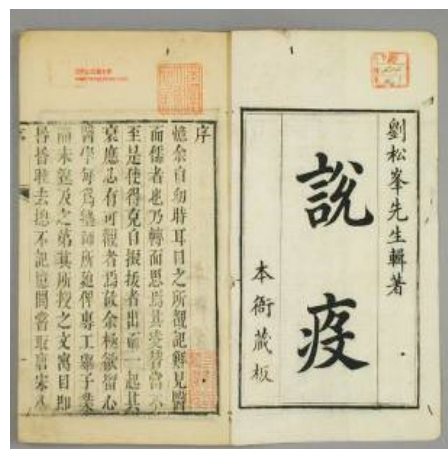 劉松峯先生輯著
說疫
本衙藏板
序
憶余自幼時耳目之所覩記鮮見醫
而儒者也乃轉而思焉其凌替當不
至是使得克自振拔者出而一起其
衰應必有可觀者焉故余極欲留心
醫學每爲塾師所迫俾專工舉子業
而未遑及之第其所授之文寓目即
昏昏睡去總不記憶間嘗取唐宋八